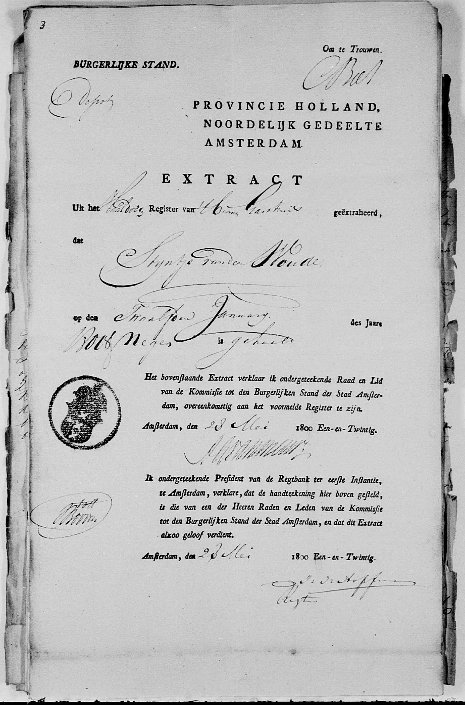 3
Om te Trouwen.
BURGERLIJKE STAND.
PROVINCIE HOLLAND,
NOORDELIJK GEDEELTE
AMSTERDAM.
EXTRACT
Uit het Register van geëxtraheerd,
dat
Woude
op den January des Jaars
is
Het bovenstaande Extract verklaar ik ondergeteekende Raad en Lid
van de Kommissie tot den Burgerlijken Stand der Stad Amster-
dam, overeenkomstig aan het voormelde Register te zijn.
Amsterdam, den 23 Mei 1800 Een-en-Twintig.
Ik ondergeteekende President van de Regtbank ter eerste Instantie,
te Amsterdam, verklare, dat de handteekening hier boven gesteld,
is die van een der Heeren Raden en Leden van de Kommissie
tot den Burgerlijken Stand der Stad Amsterdam, en dat dit Extract
alzoo geloof verdient.
Amsterdam, den 23 Mei 1800 Een-en-Twintig.